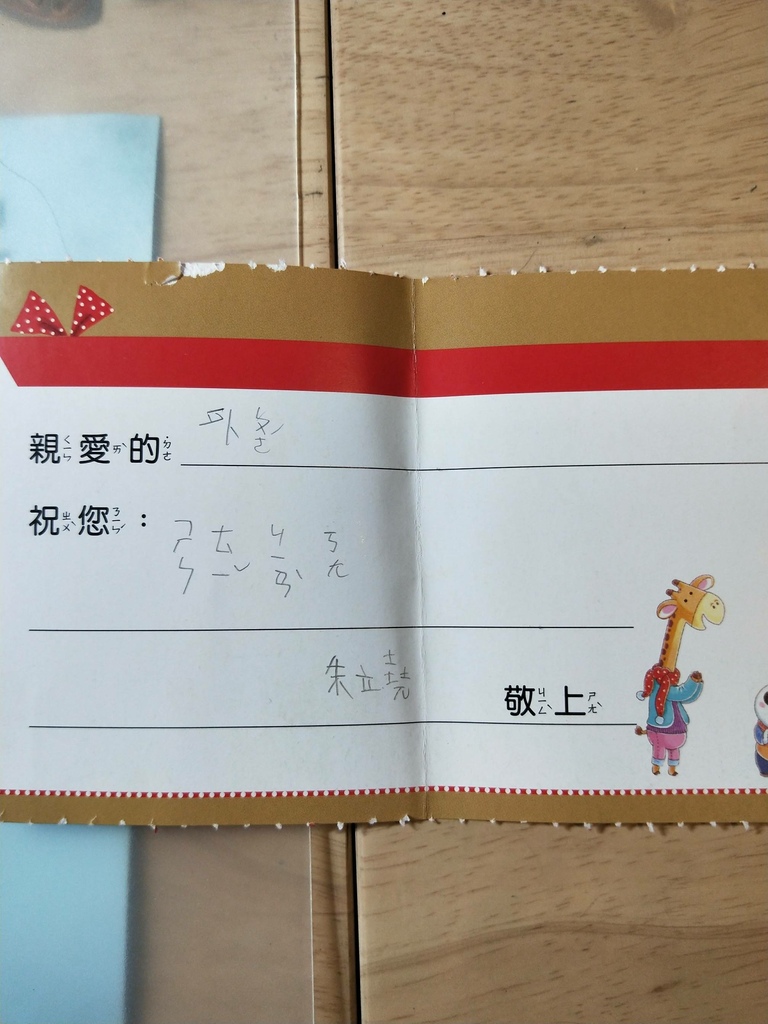 親ㄑㄧㄣ愛ㄞˋ的˙ㄉㄜ 外ㄆㄛˊ
祝ㄓㄨˋ您ㄋㄧㄣˊ：
ㄕㄣ ㄊㄧˇ ㄐㄧㄢˋ ㄎㄤ
朱立堯 敬ㄐㄧㄥˋ上ㄕㄤˋ